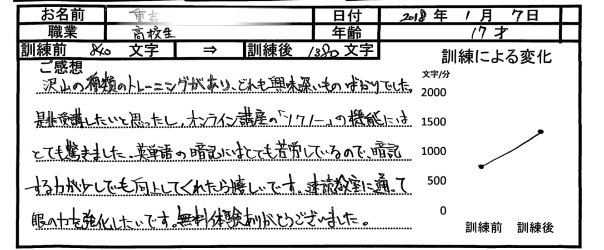 お名前
日付 2018年 1月 7日
職業 高校生 年齢 17才
訓練前 840文字 ⇒ 訓練後 1380文字
ご感想
沢山の種類のトレーニングがあり、どれも興味深いものばかりでした。
是非受講したいと思ったし、オンライン講座の「ソクノー」の機能には
とても驚きました。英単語の暗記にはとても苦労しているので、暗記
する力が少しでも向上してくれたら嬉しいです。速読教室に通って
眼の力を強化したいです。無料体験ありがとうございました。
訓練による変化
文字/分
2000
1500
1000
500
0
訓練前 訓練後